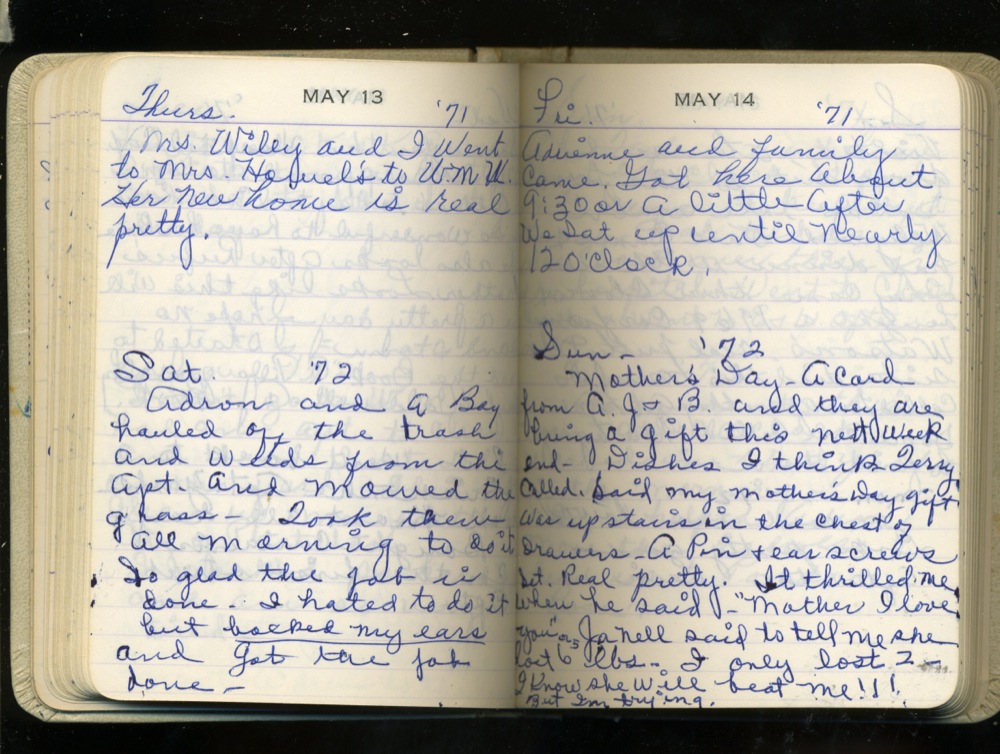 MAY 13
Thurs. '71
Mrs. Wiley and I Went
to Mrs. to W.M.U.
Her New home is real
pretty.
Sat. '72
Adron and a Boy
hauled off the trash
and weeds from the
Apt. and Mowed the
grass - Took them
all morning to do it
So glad the job is
done - I hated to do it
but backed my ears
and got the job
done -
MAY 14
Fri. '71
and family
Came. Got here about
9:30 or a little after
We Sat up until Nearly
12 O'clock.
Sun - '72
Mother's Day - A Card
from A. J & B. and they are
bring a gift this next Week
end - Dishes I think Terry
Called. Said my mothers Day gift
was upstairs in the chest of
Drawers - A Pin & ear screws
Set. Real pretty. It thrilled me
when he said - "Mother I love
you" Janell said to tell me she
lost 6 lbs - I only lost 2 -
I know she will beat me!!!
But I'm trying.